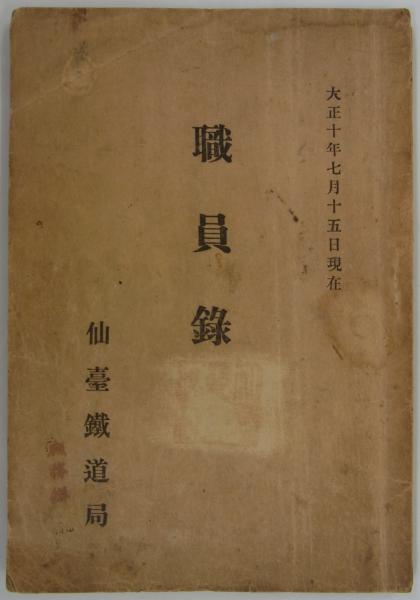 大正十年七月十五日現在
職員錄
仙臺鐵道局